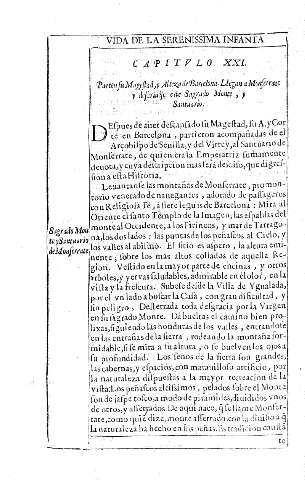 VIDA DE LA SERENISSIMA INFANTA
CAPITVLO XXI.
Parten su Magestad, y Alteza de Barcelona. Llegan a Monserrate
y descriuese este Sagrado Monte, y
Santuario.
DEspues de auer descansado su Magestad, su A. y Cor
té en Barcelona, partieron acompañadas de el
Arçobispo de Seuilla, y del Virrey, al Santuario de
Monserrate, de quien era la Emperatriz sumamente
deuota, y cuya descripcion mas serà desaho, que digres-
sion a esta Historia.
Leuantanse las montañas de Monserrate, pro mon-
torio venerado de nauegantes, adorado de passageros
con Religiosa Fè, à siete leguas de Barcelona: Mira al
Oriente el santo Templo de la Imagen; las espaldas del
monte al Occidente, à los Pirineos, y mar de Tarrago-
na, los dos lados; las puntas de los peñascos al Cielo, y
los valles al abismo. El sitio es aspero, la altura emi-
nente, sobre los mas altos collados de aquella Re-
gion. Vestido en la mayor parte de encinas, y otros
arboles, y yeruas saludables, admirable en el olor, en la
vista, y la frescura. Subese desde la Villa de Ygualada,
por el vn lado a buscar la Casa, con gran dificultad, y
sin peligro, Desterrada toda desgracia por la Virgen
en su sagrado Monte. Dà bueltas el camino bien pro-
lixas, siguiendo las honduras de los valles, entrandose
en las entrañas de la sierra, rodeando la montaña for-
midable, si se mira a su altura, o se bueluen los ojos, a
su profundidad. Los senos de la sierra son grandes,
las tabernas, y espacios, con marauilloso artificio, por
la naturaleza dispuestas a la mayor recreacion de la
vista. Los peñascos altissimos, pelados sobre el Monte
son de jaspe tosco, a modo de piramides, diuididos vnos
de otros, y asserrados. De aqui nace, q̃ se llame Monser-
rate, como quiẽ dize, monte asserrado con la diuisiõ q̃
la naturaleza ha hecho en sus peñas. Es tradicion cõstã
te
Sagrado Mon
te y Santuario
de Monserrate.